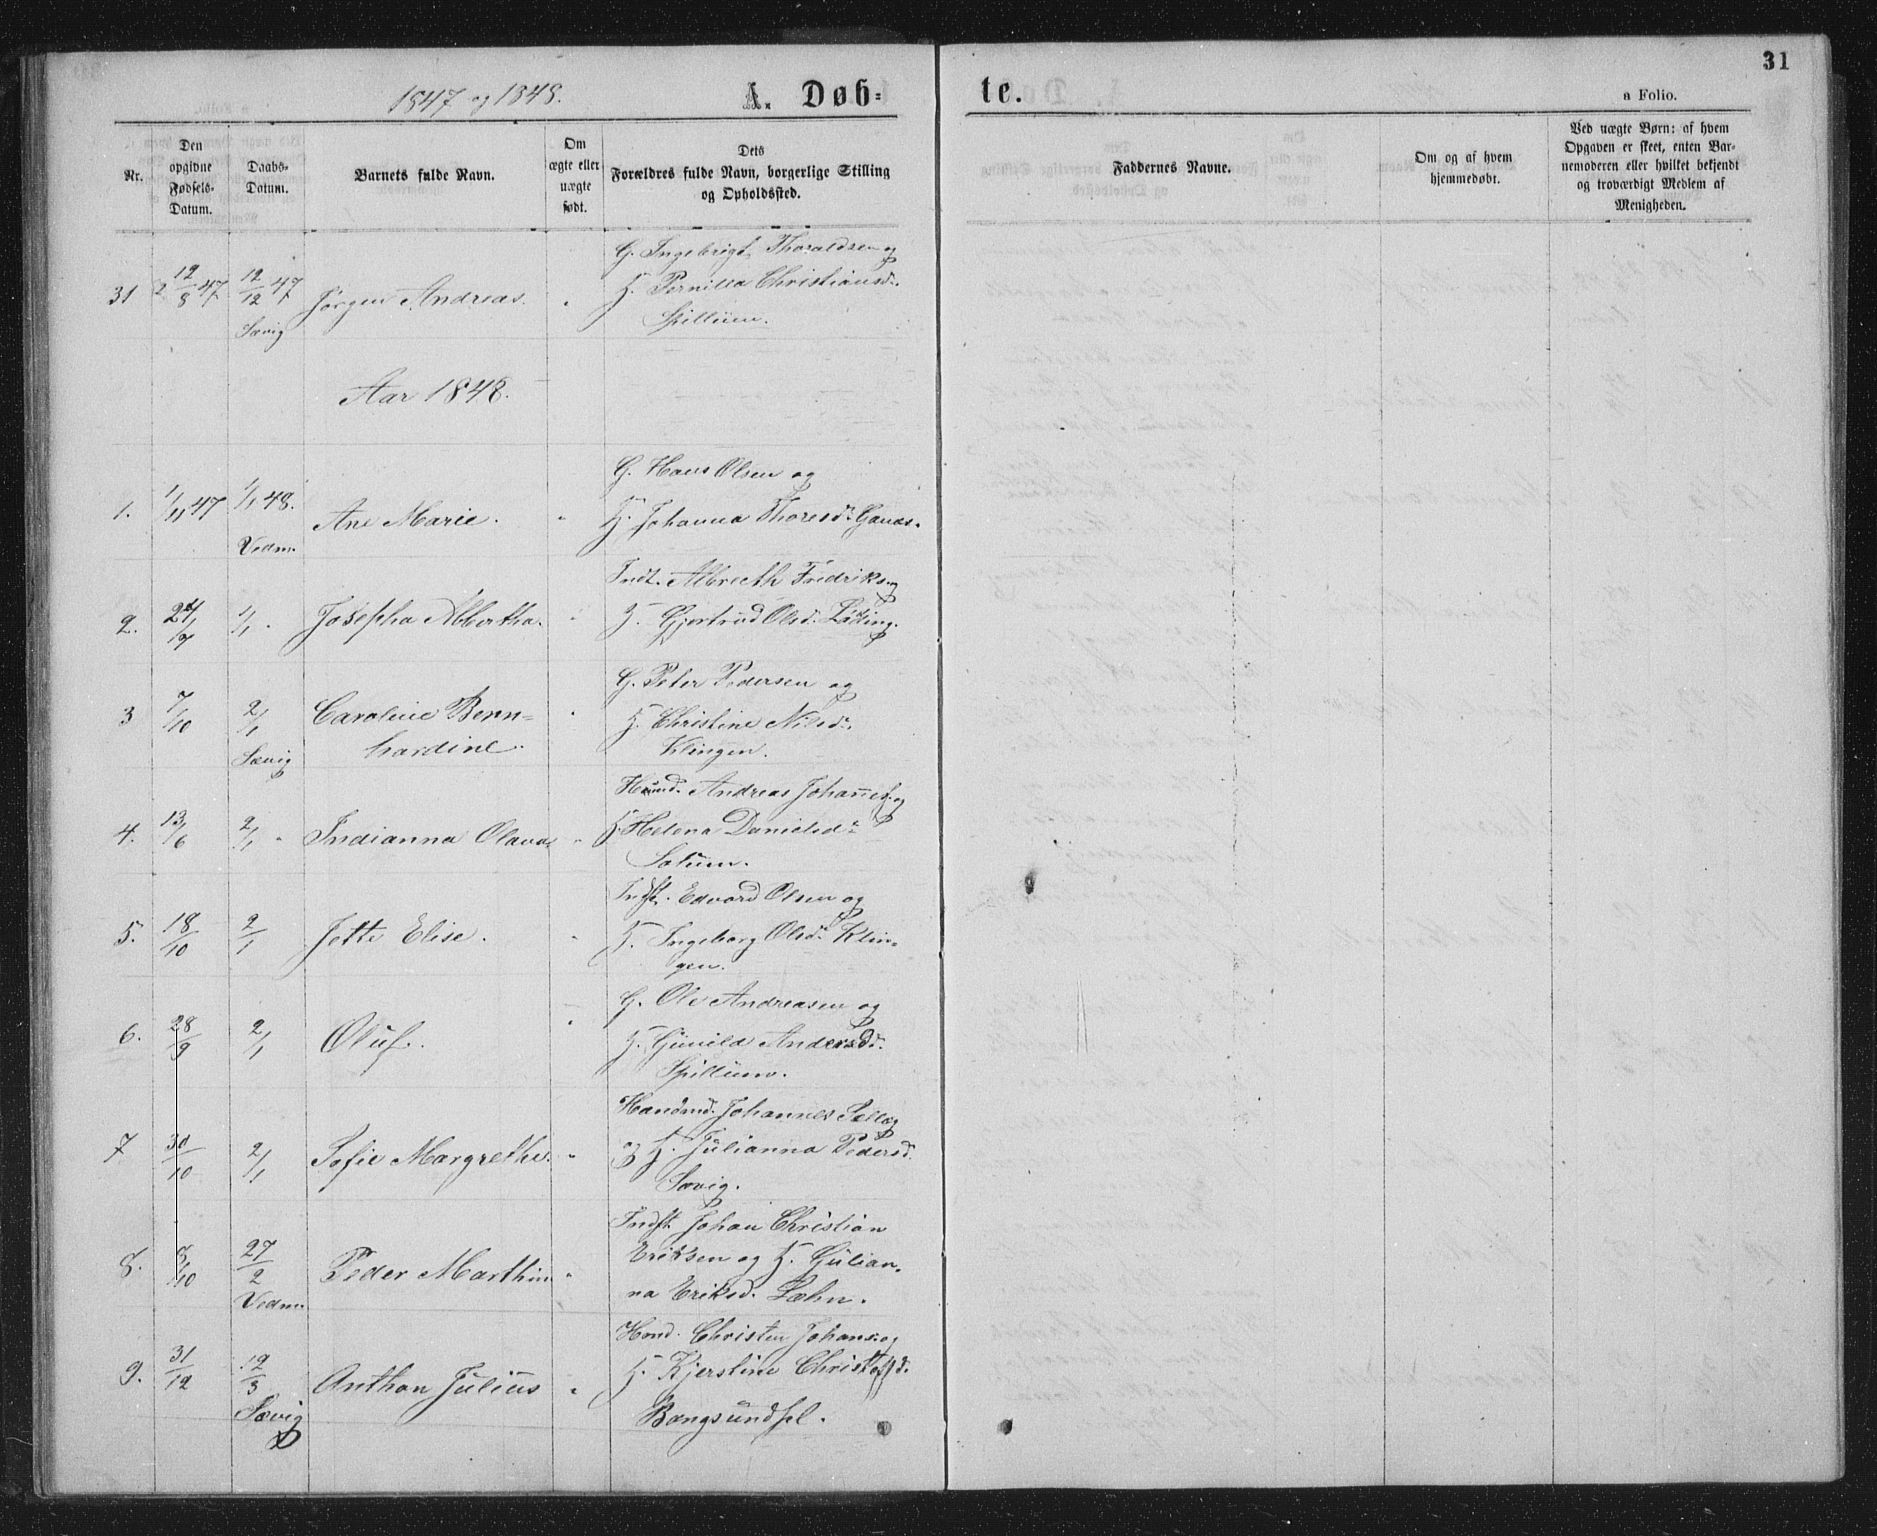 31
1847 og 1848.
A. Døb=
te.
a Folio.
Nr.
Den
opgivne
Fødsels-
Datum.
Daabs-
Datum.
Barnets fulde Navn.
Om
ægte eller
uægte
født.
Dets
Forældres fulde Navn, borgerlige Stilling
og Opholdssted.
Faddernes Navne.
Om og af hvem
hjemmedøbt.
Ved uægte Børn: af hvem
Opgaven er skeet, enten Bar-
nemoderen eller hvilket bekjendt
og troværdigt Medlem af
Menigheden.
G. Ingebrigt Thoraldsen og
31 12/8 47 12/12 47 Jørgen Andreas. H. Pernilla Christiansd.
Sævig Spillum.
Aar 1848.
G. Hans Olsen og
1. 1/11 47 1/1 48. Ane Marie. H. Johanna Thoresd. Ganas.
Vedm.
Indt. Albrecth Fredriks. og
2. 24/12 1/1 Josepha Albertha. H. Gjertrud Olsd. Løding.
G. Peter Pedersen og
3 7/10 2/1 Caroline Bern= H. Christine Nilsd.
Sævig hardine. Klingen.
Huusmd. Andreas Johannes. og
4. 13/6 2/1 Indianna Olava H. Helena Danielsd.
Solum.
Indst. Edvard Olsen og
5. 18/10 2/1 Jette Elise. H. Ingeborg Olsd. Klin=
gen.
G. Ole Andreasen og
6. 28/9 2/1 Oluf. H. Gunild Andersd.
Spillum.
Handmd. Johannes
7 30/10 2/1 Sofie Margrethe. og H. Julianna Pedersd.
Sævig.
Indst. Johan Christian
8. 3/10 27/2 Peder Marthin Eriksen og H. Gulian=
Vedm. na Eriksd. Læhn.
Hmd. Christen Johans. og
9. 31/12 12/3 Anthon Julius H. Kjerstine Christofd.
Sævig Bangsundpl.